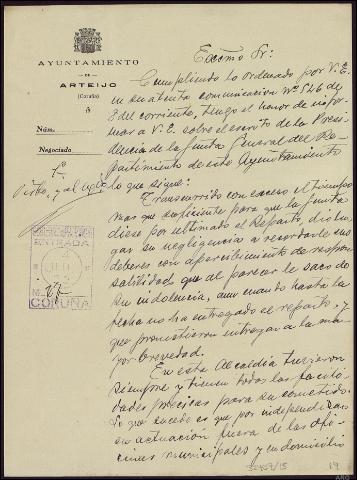 AYUNTAMIENTO
DE
ARTEIJO
(Coruña)
Núm.
Negociado
ENTRADA
CORUÑA
Excmo Sr:
Cumpliendo lo ordenado por V. E.
en su atenta comunicacion nº 546 de
8 del corriente, tengo el honor de infor-
mar a V. E. sobre el escrito de la Presi-
dencia de la Junta General del Re-
partimiento de este Ayuntamiento
lo que sigue:
Transcurrido con exceso el tiempo
mas que suficiente para que la Junta
diese por ultimado el Reparto, dió lu-
gar su negligencia a recordarle sus
deberes con apercibimiento de respon-
sabilidad que al parecer la saco de
su indolencia, aun cuando hasta la
fecha no ha entregado el reparto, y
que prometieron entregar a la ma-
yor brevedad.
En esta Alcaldía tuvieron
siempre y tienen todas las facili-
dades precisas para su cometido.
Lo que sucede es que por independizar
su actuación fuera de las ofi-
cinas municipales y en domicilio
19